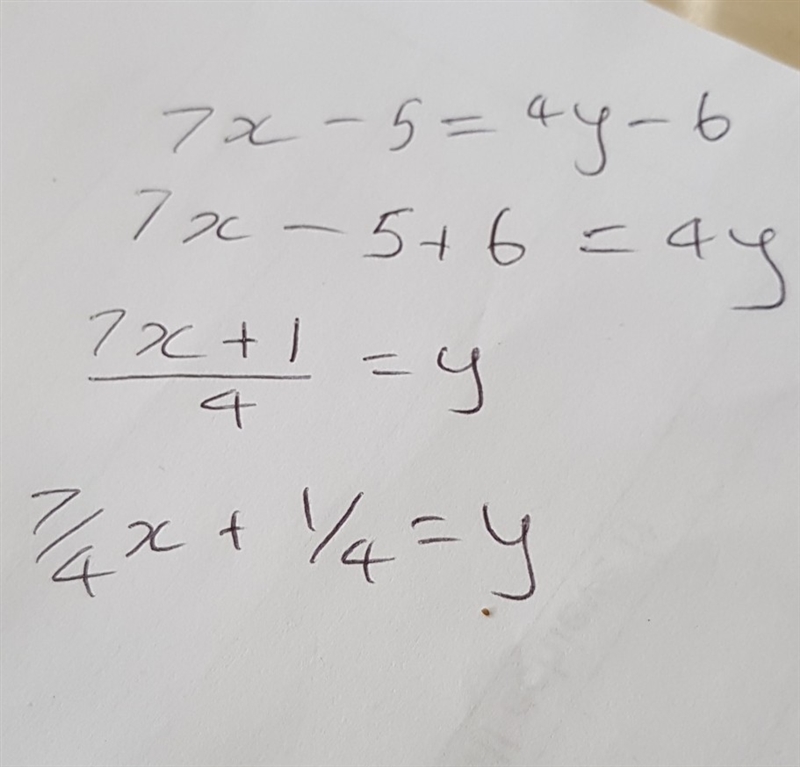 7x - 5 = 4y - 6
7x - 5 + 6 = 4y
7x + 1 / 4 = y
7/4 x + 1/4 = y